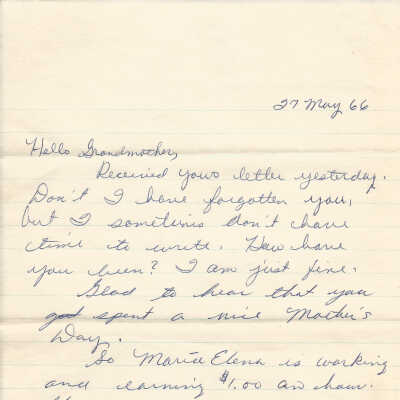 27 May 66
Hello Grandmother,
Received your letter yesterday.
Don't I have forgotten you,
but I sometimes don't have
time to write. How have
you been? I am just fine.
Glad to hear that you
got spent a nice Mother's
Day.
So María Elena is working
and earning $1.00 an hour.